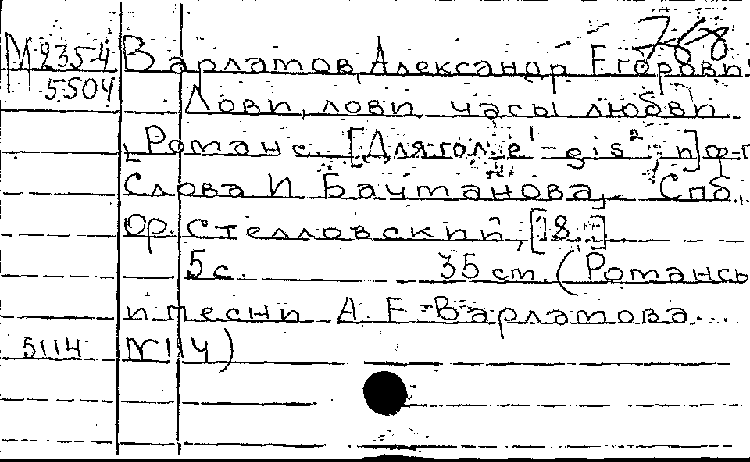 768
М 235-4 Варламов, Александр Егорови
5504 Лови, лови часы любви
Романс. [Для гол. e¹-gis², и] ф-п
Слова И Бачманова, Спб.
Ф. Стелловский, [18..]
5 с. 35 см. (Романсы
и песни А. Е. Варламова...
5114 №114)